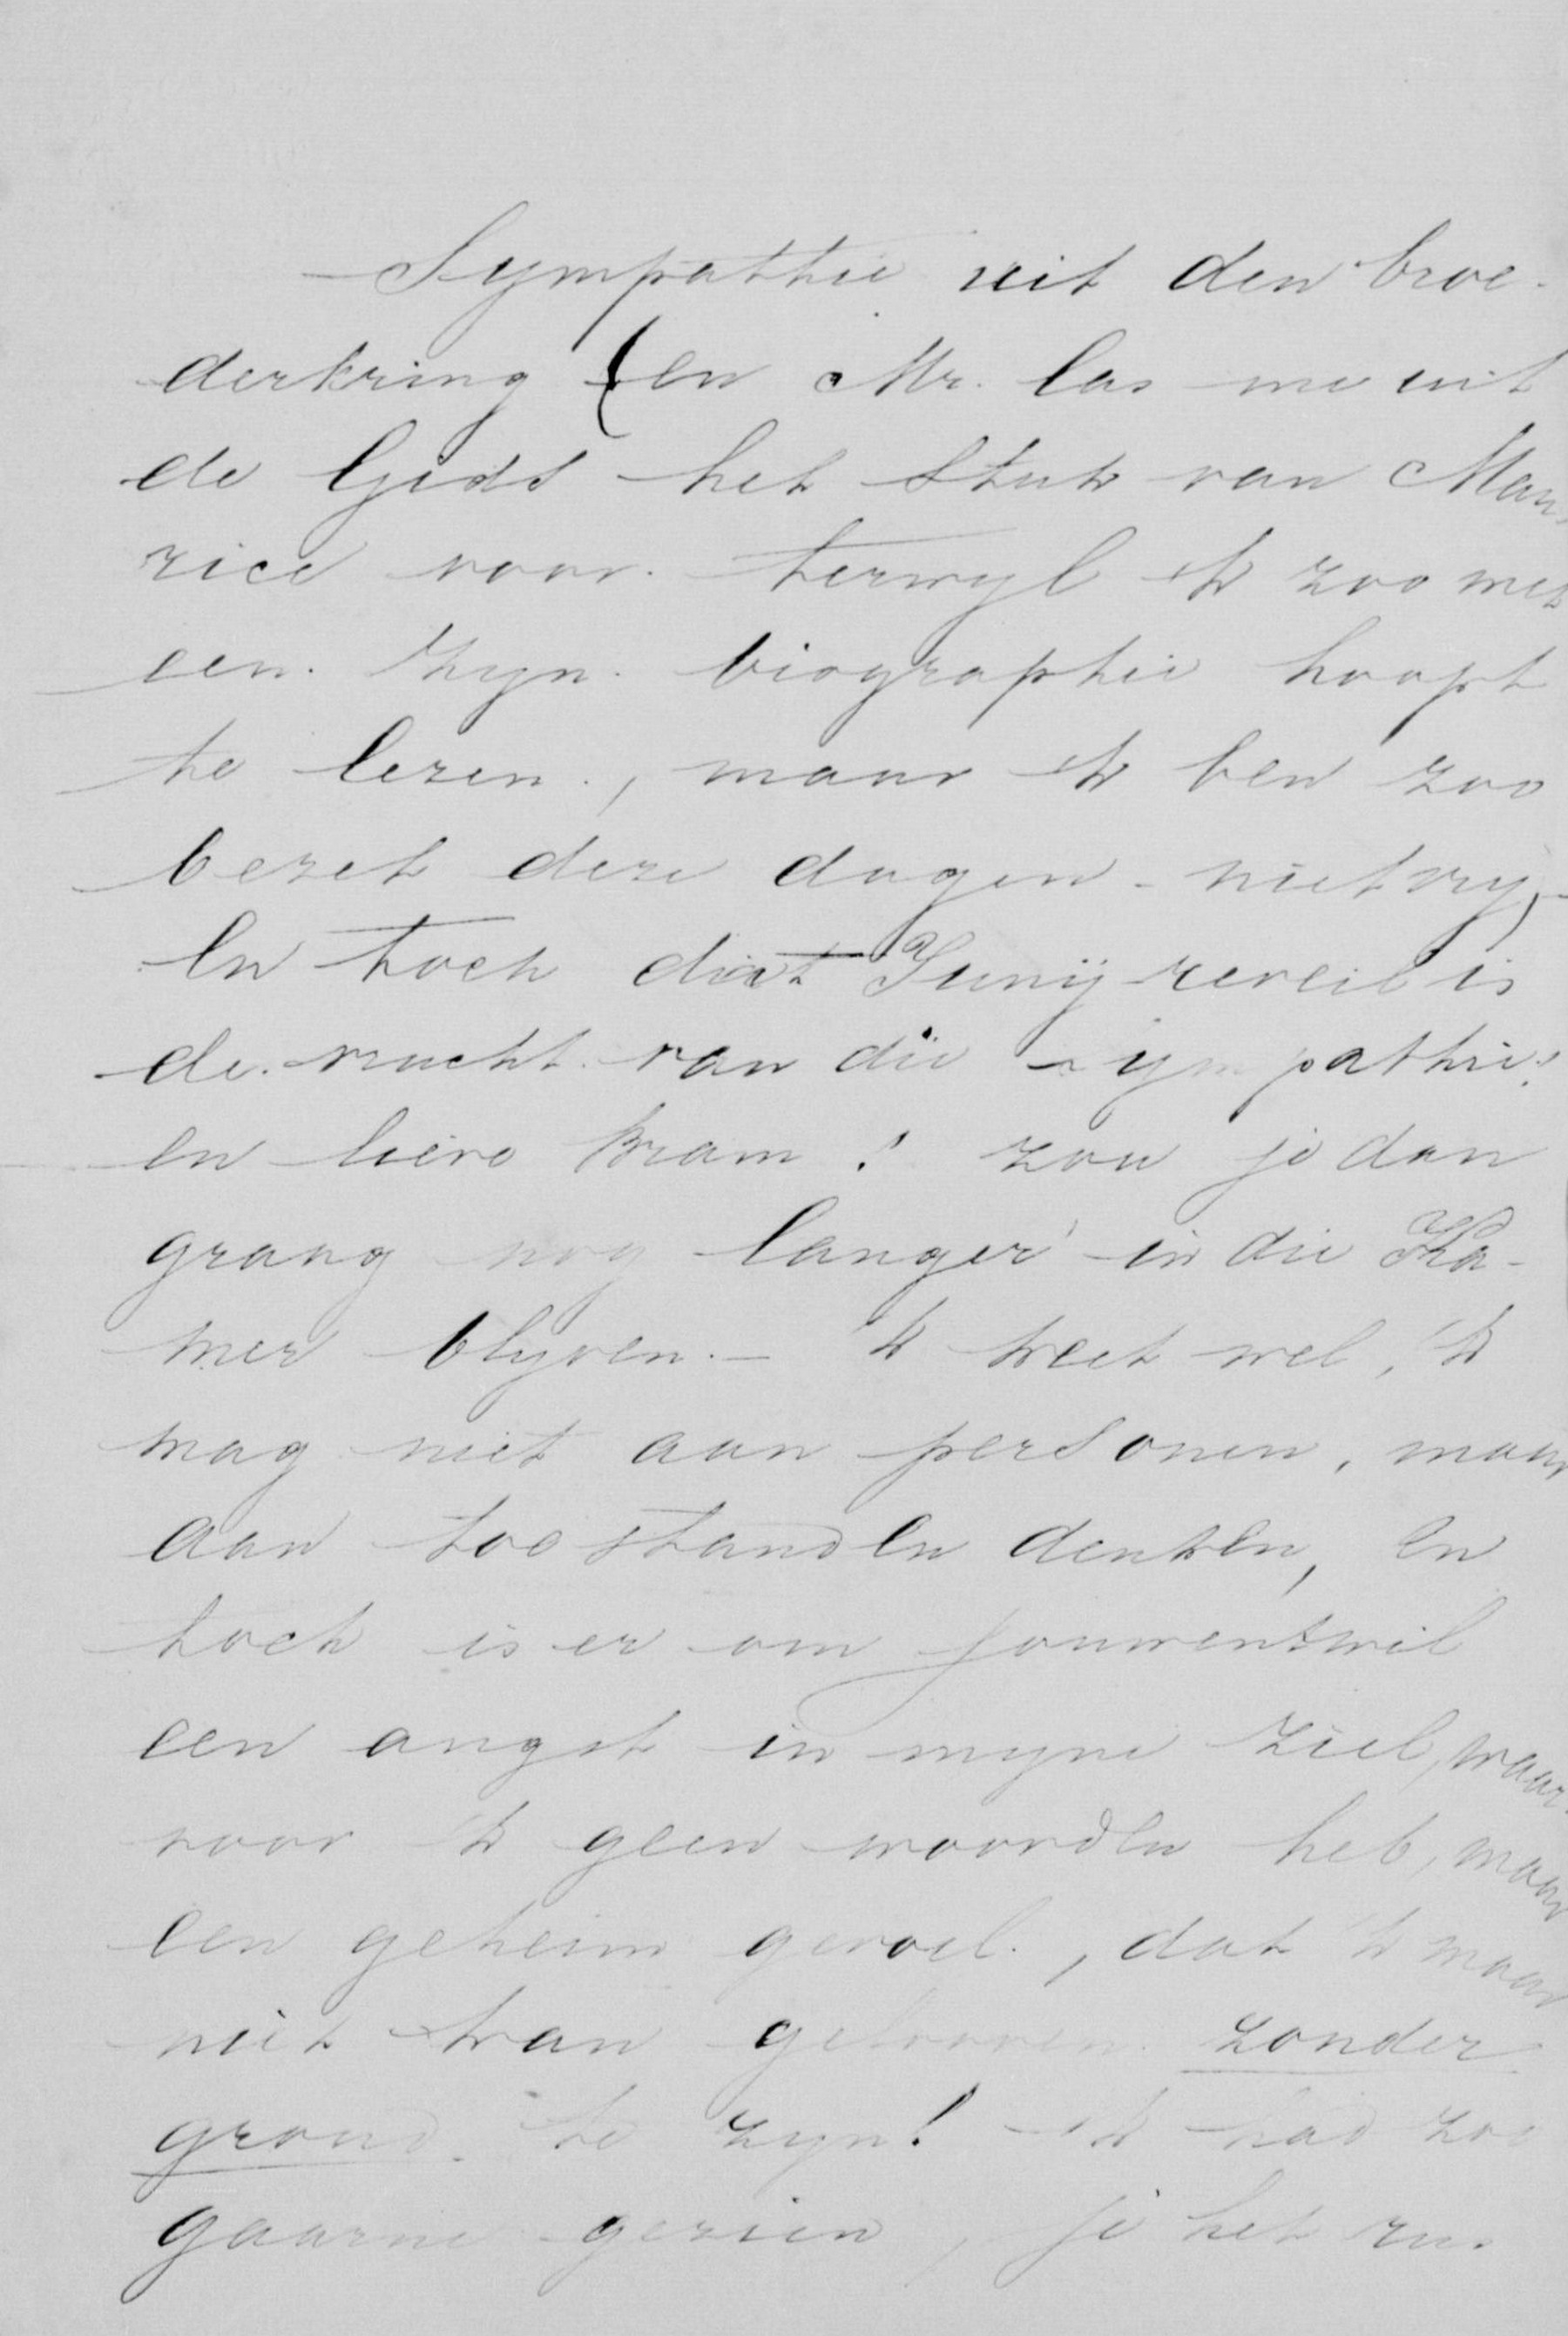 Sympathie uit den broe-
derkring (en Mr. las me uit
de Gids het stuk van Mau
rice voor. terwyl ik zoo met
een. Zyn. biographie hoopt
te lezen., maar ik ben zoo
bezet deze dagen - niet vry,-
En toch dat Junij reveil is
de. vrucht van die sympathie!
en lieve Bram! zou je dan
graag nog langer in die Ka-
mer blyven. - 'k weet wel, 'k
mag niet aan personen, maar
aan toestanden denken, en
toch is er om jouwentwil
een angst in myne ziel, waar-
voor 'k geen woorden heb, maar
een geheim gevoel., dat 'k maar
niet kan gelooven zonder
grond. te zyn! ik had zoo
gaarne gezien, je het